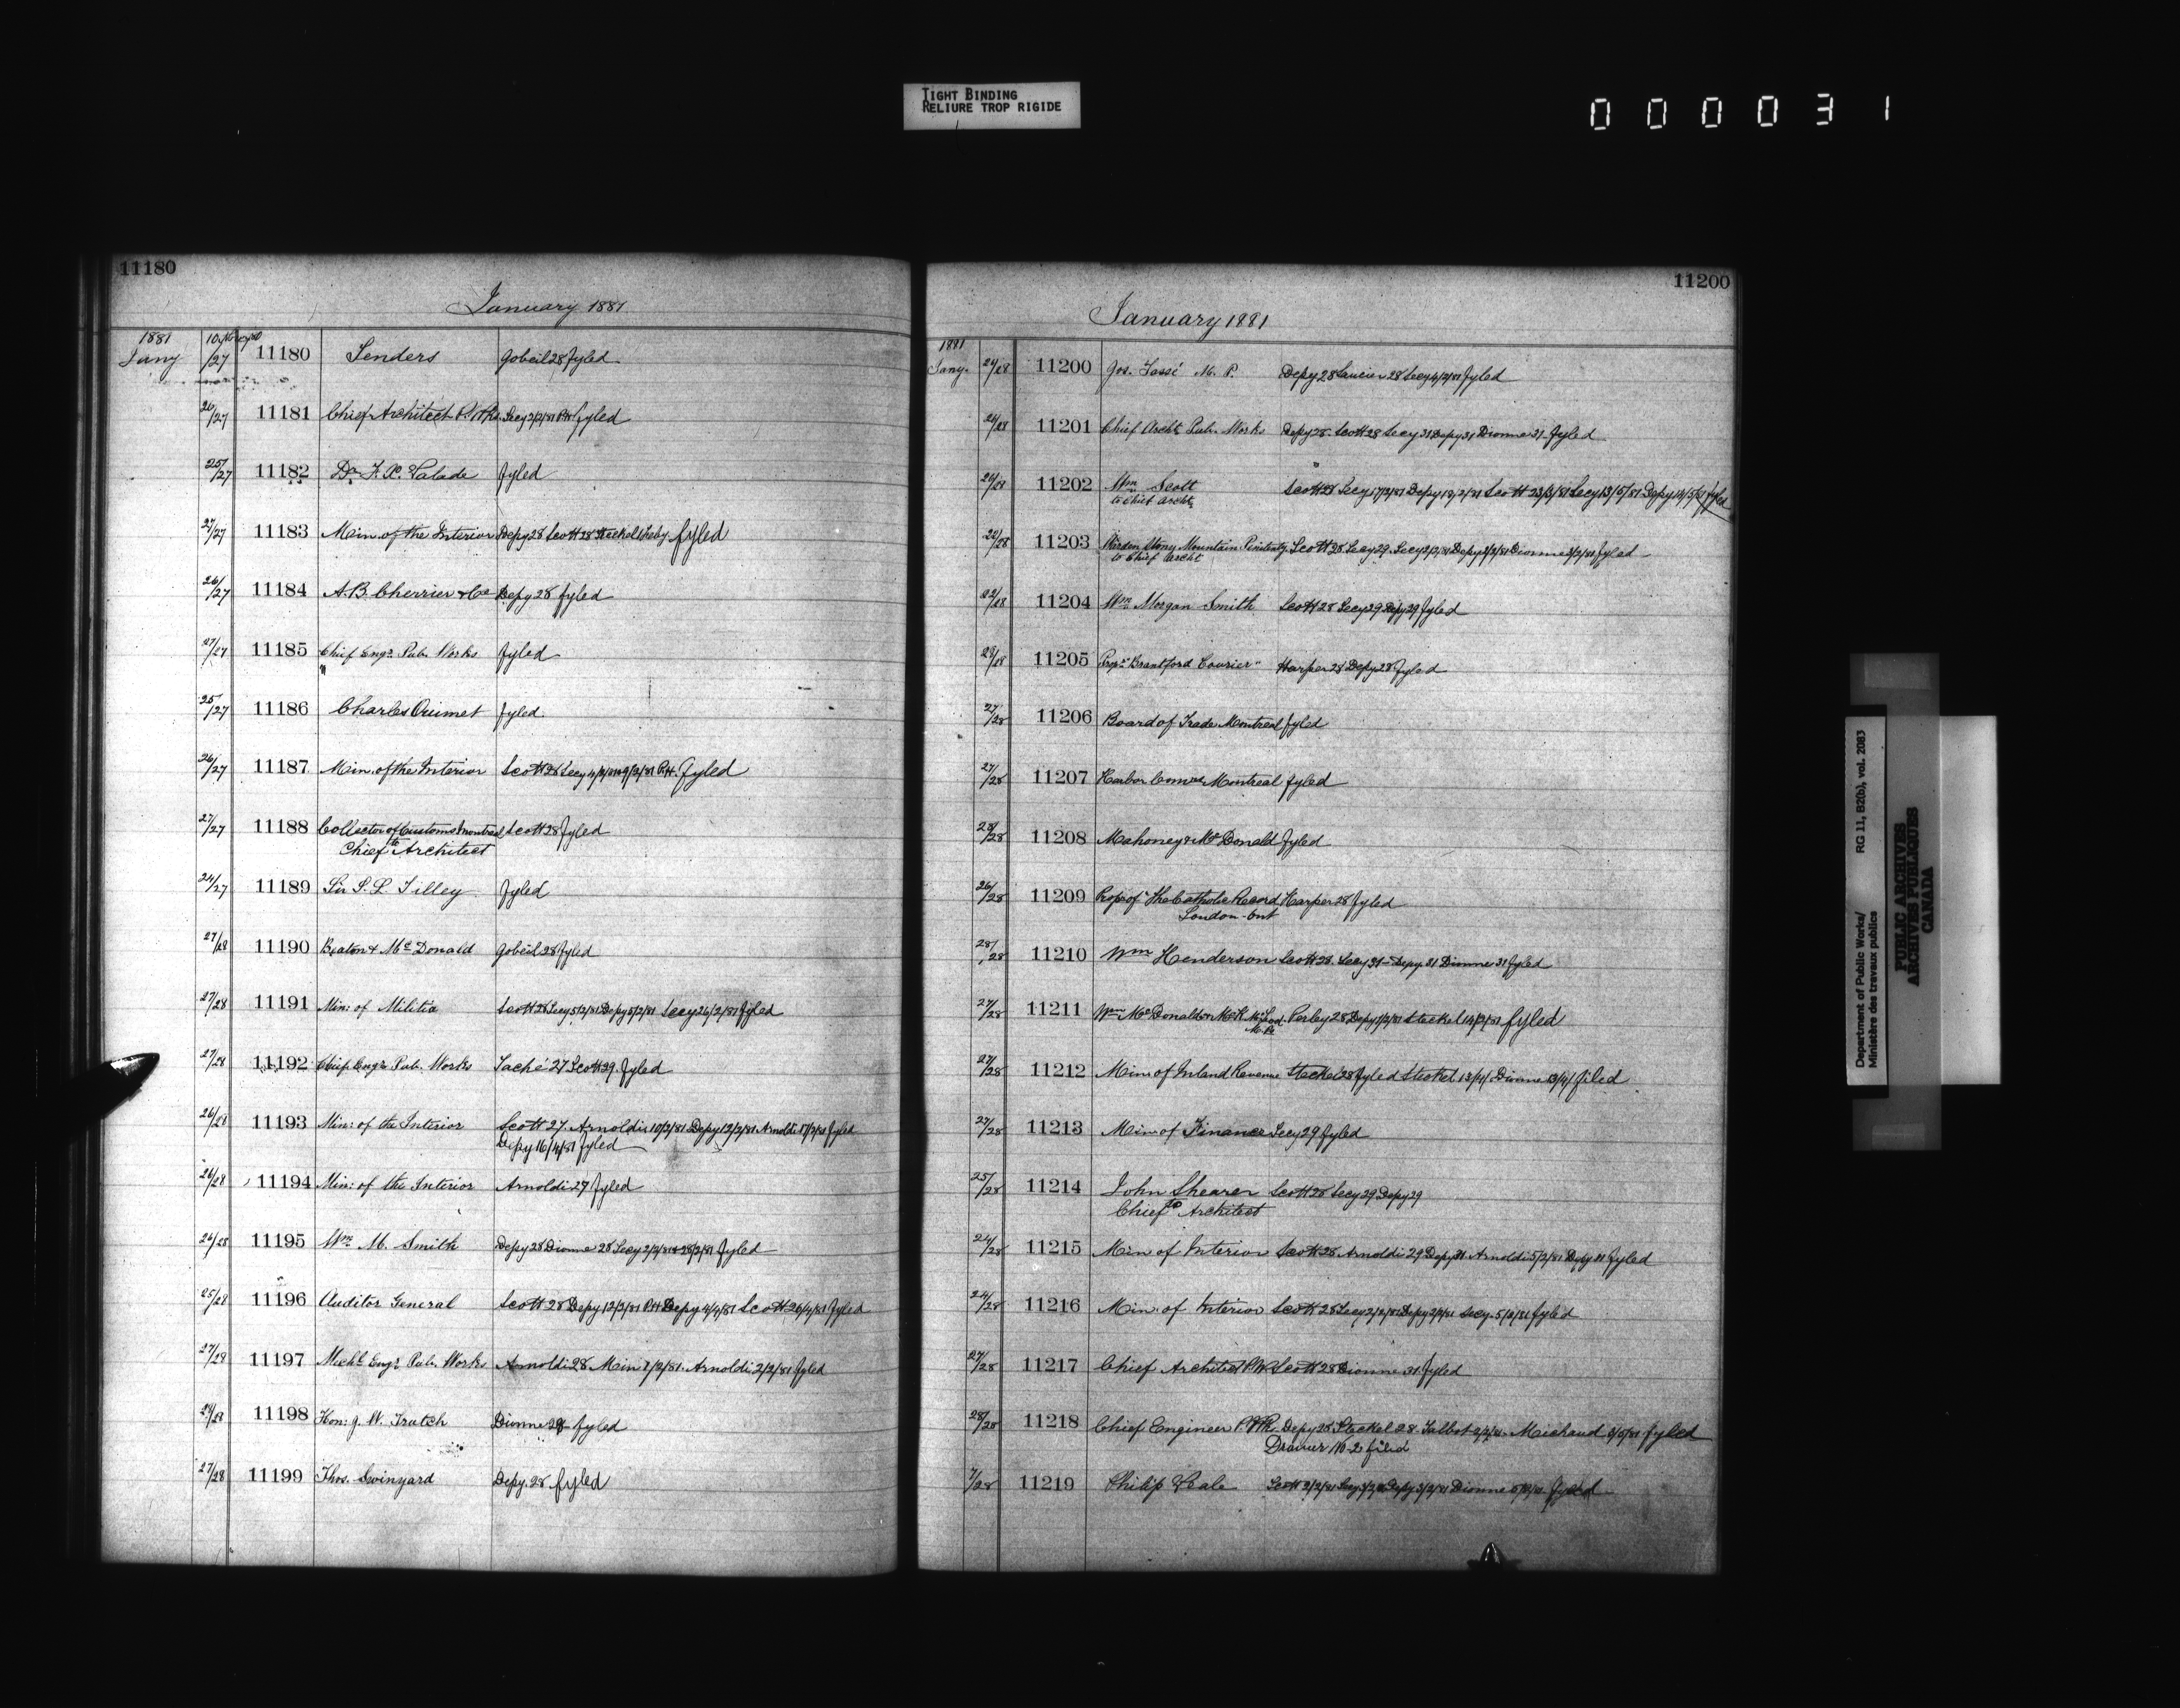 TIGHT BINDING
RELIURE TROP RIGIDE
000031
11180
January 1881
1881
Jany /27 11180 Senders Gobeil 28 Fyled
26/27 11181 Chief Architect P. Wks. Secy 2/2/81 P.H. fyled
25/27 11182 Dr. F. X. Valade fyled
27/27 11183 Min. of the Interior Depy 28 Scott 28 Steckel fyled
26/27 11184 A. B. Cherrier & Co Depy 28 fyled
27/27 11185 Chief Engr. Pub. Works fyled
25/27 11186 Charles Ouimet fyled.
26/27 11187 Min. of the Interior Scott 28 Secy 4/2/81 9/2/81 P.H. Fyled
27/27 11188 Collector of Customs Montreal Scott 28 Fyled
to Chief Architect
24/27 11189 Sir S. L. Tilley fyled
27/28 11190 Beaton & McDonald Gobeil 28 fyled
27/28 11191 Min: of Militia Scott 28 Secy 5/2/81 Depy 5/2/81 Secy 26/2/81 Fyled
27/28 11192 Chief Engr. Pub. Works Taché 27 Scott 29. fyled
26/28 11193 Min: of the Interior Scott 27. Arnoldi 10/2/81 Depy 12/2/81 Arnoldi fyled
Depy 16/4/81 fyled
26/28 11194 Min: of the Interior Arnoldi 27 fyled
26/28 11195 Wm. M. Smith Depy 28 Dionne 28 Secy 2/2/81 28/2/81 fyled
25/28 11196 Auditor General Scott 28 Depy 12/2/81 P.H. Depy 4/4/81 Scott 26/4/81 Fyled
27/28 11197 Mechl. Engr. Pub. Works Arnoldi 28 Min 1/2/81. Arnoldi 2/2/81 fyled
11198 Hon: J. W. Trutch Dionne 28 fyled
27/28 11199 Thos. Swinyard Depy. 28 fyled
11200
January 1881
1881
Jany. 11200 Jos. Tassé M. P. Depy 28 Saucier 28 Secy 4/2/81 fyled
11201 Chief Archt. Pub. Works Depy 28. Scott 28 Secy 31 Depy 31 Dionne 31 fyled
11202 Wm Scott Scott 28 Secy 17/2/81 Depy 18/2/81 Scott 23/3/81 Secy 13/5/81 Depy 14/5/81 fyled
to Chief Archt.
11203 Warden Stony Mountain Penitenty. Scott 28 Secy 29. Secy 2/2/81 Depy 2/2/81 Dionne 2/2/81 fyled
to Chief Archt
22/28 11204 Wm. Morgan Smith Scott 28 Secy 29 Depy 29 fyled
11205 Propr. "Brantford Courier" Harper 28 Depy 28 fyled
27/28 11206 Board of Trade Montreal fyled
27/28 11207 Harbor Comrs. Montreal fyled
28/28 11208 Mahoney & McDonald fyled
26/28 11209 Prop. of "The Catholic Record Harper 28 fyled
London Ont
28/28 11210 Wm Henderson Scott 28. Secy 31 Depy 31 Dionne 31 fyled
27/28 11211 Wm. McDonald & McLeod. Perley 28 Depy 1/2/81 Steckel 14/2/81 fyled
27/28 11212 Min: of Inland Revenue Steckel 28 fyled Steckel 13/4/ Dionne 13/4/ filed
27/28 11213 Min: of Finance Secy 29 fyled
25/28 11214 John Shearer Scott 28 Secy 29 Depy 29
to Chief Architect
24/28 11215 Min of Interior Scott 28. Arnoldi 29 Depy 31. Arnoldi 5/2/81 Depy fyled
24/28 11216 Min: of Interior Scott 28 Secy 2/2/81 Depy 2/2/81 Secy. 5/2/81 fyled
27/28 11217 Chief Architect P.W. Scott 28 Dionne 31 fyled
28/28 11218 Chief Engineer P. Wk. Depy 28. Steckel 28. Talbot Michaud fyled
Drawer No 2 filed
7/28 11219 Philip Veale Scott 2/2/81 Secy Depy 3/2/81 Dionne fyled
Department of Public Works/ RG 11, B2(b), vol. 2083
Ministère des travaux publics
PUBLIC ARCHIVES
ARCHIVES PUBLIQUES
CANADA